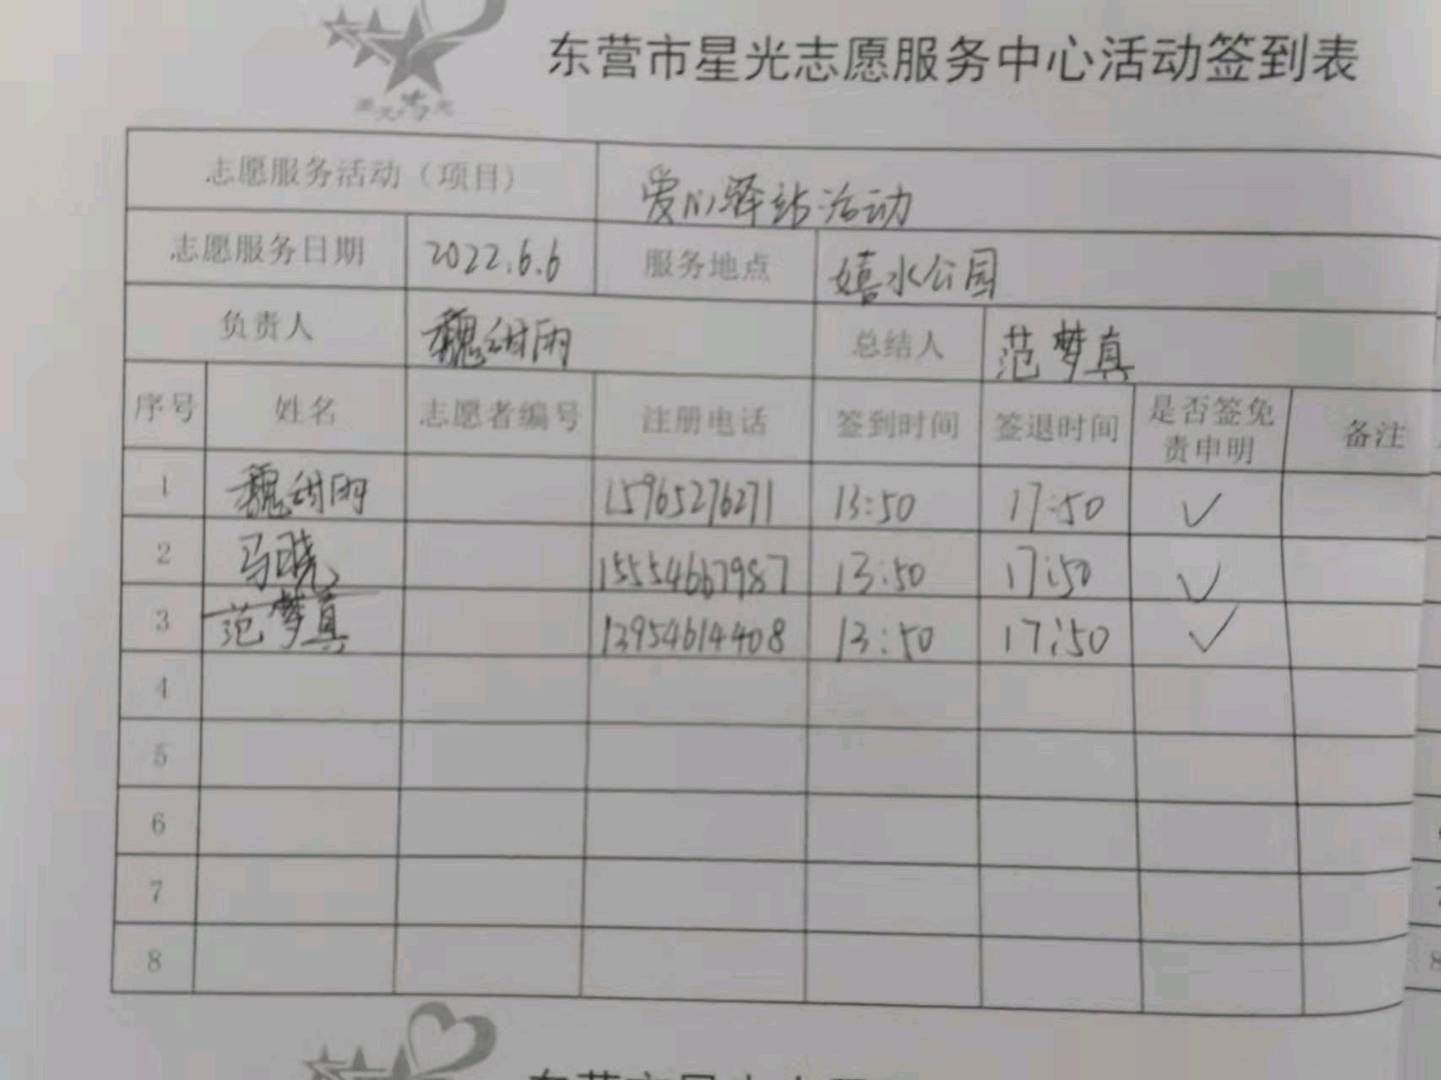 东营市星光志愿服务中心活动签到表
志愿服务活动（项目） 爱心驿站活动
志愿服务日期 2022.6.6 服务地点 嬉水公园
负责人 魏甜雨 总结人 范梦真
序号 姓名 志愿者编号 注册电话 签到时间 签退时间 是否签免责申明 备注
1 魏甜雨 15965276271 13:50 17:50 ✓
2 马晓 15554667987 13:50 17:50 ✓
3 范梦真 13954614408 13:50 17:50 ✓
4
5
6
7
8